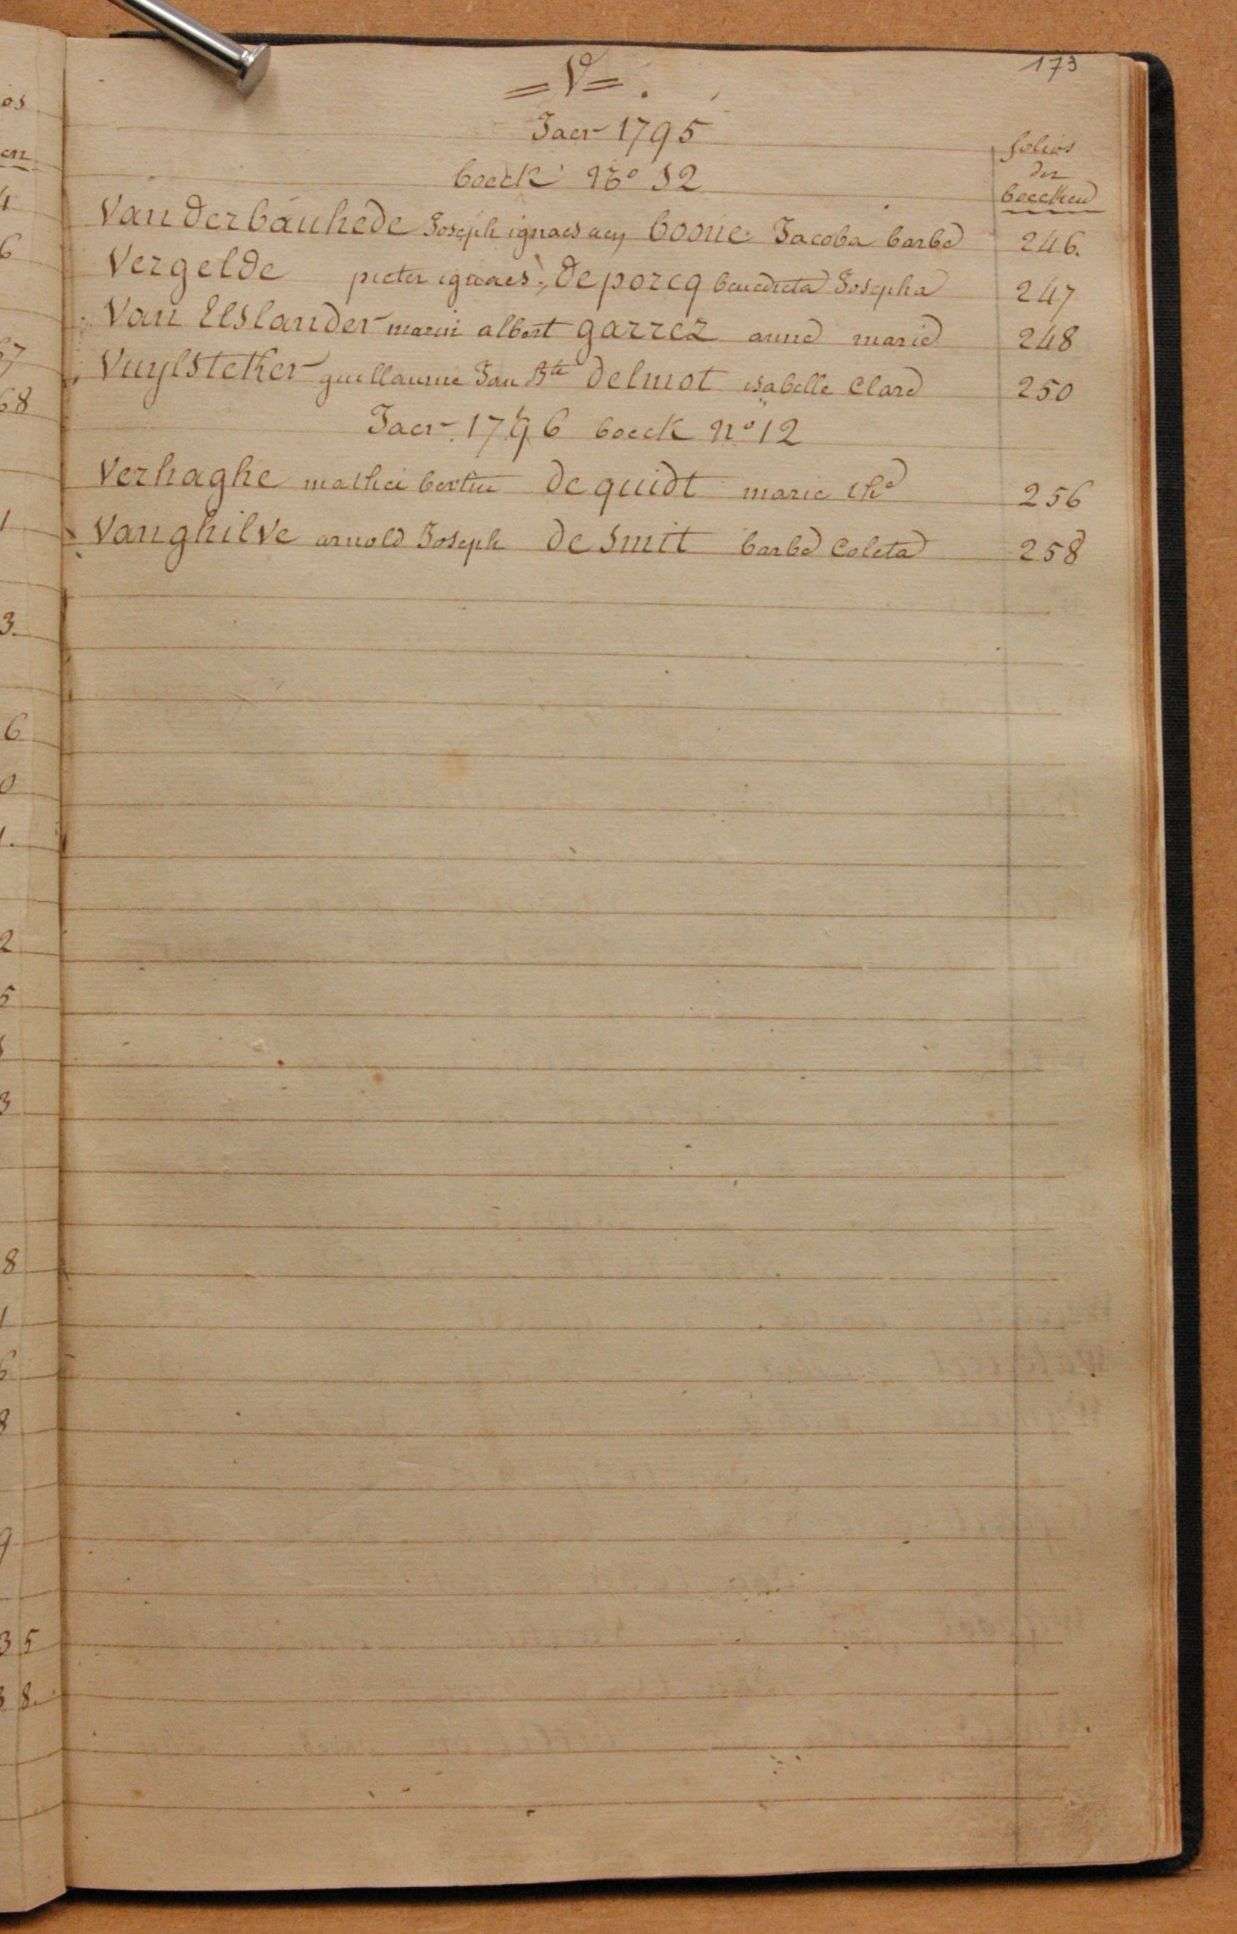 173
= V = .
Jaer 1795
boeck No 12
folios
der
boecken
Van Derbauhede Joseph ignaes boone Jacoba barbe 246.
Vergelde pieter ignaes De porcq benedicta Josepha 247
Van Elslander marin albert garrez anne marie 248
Vuylsteker guillaume Jan Bte Delmot isabelle Clare 250
Jaer 1796 boeck no 12
Verhaghe mathei bertin De quidt marie the 256
Vanghilve arnold Joseph De Smit barbe Coleta 258